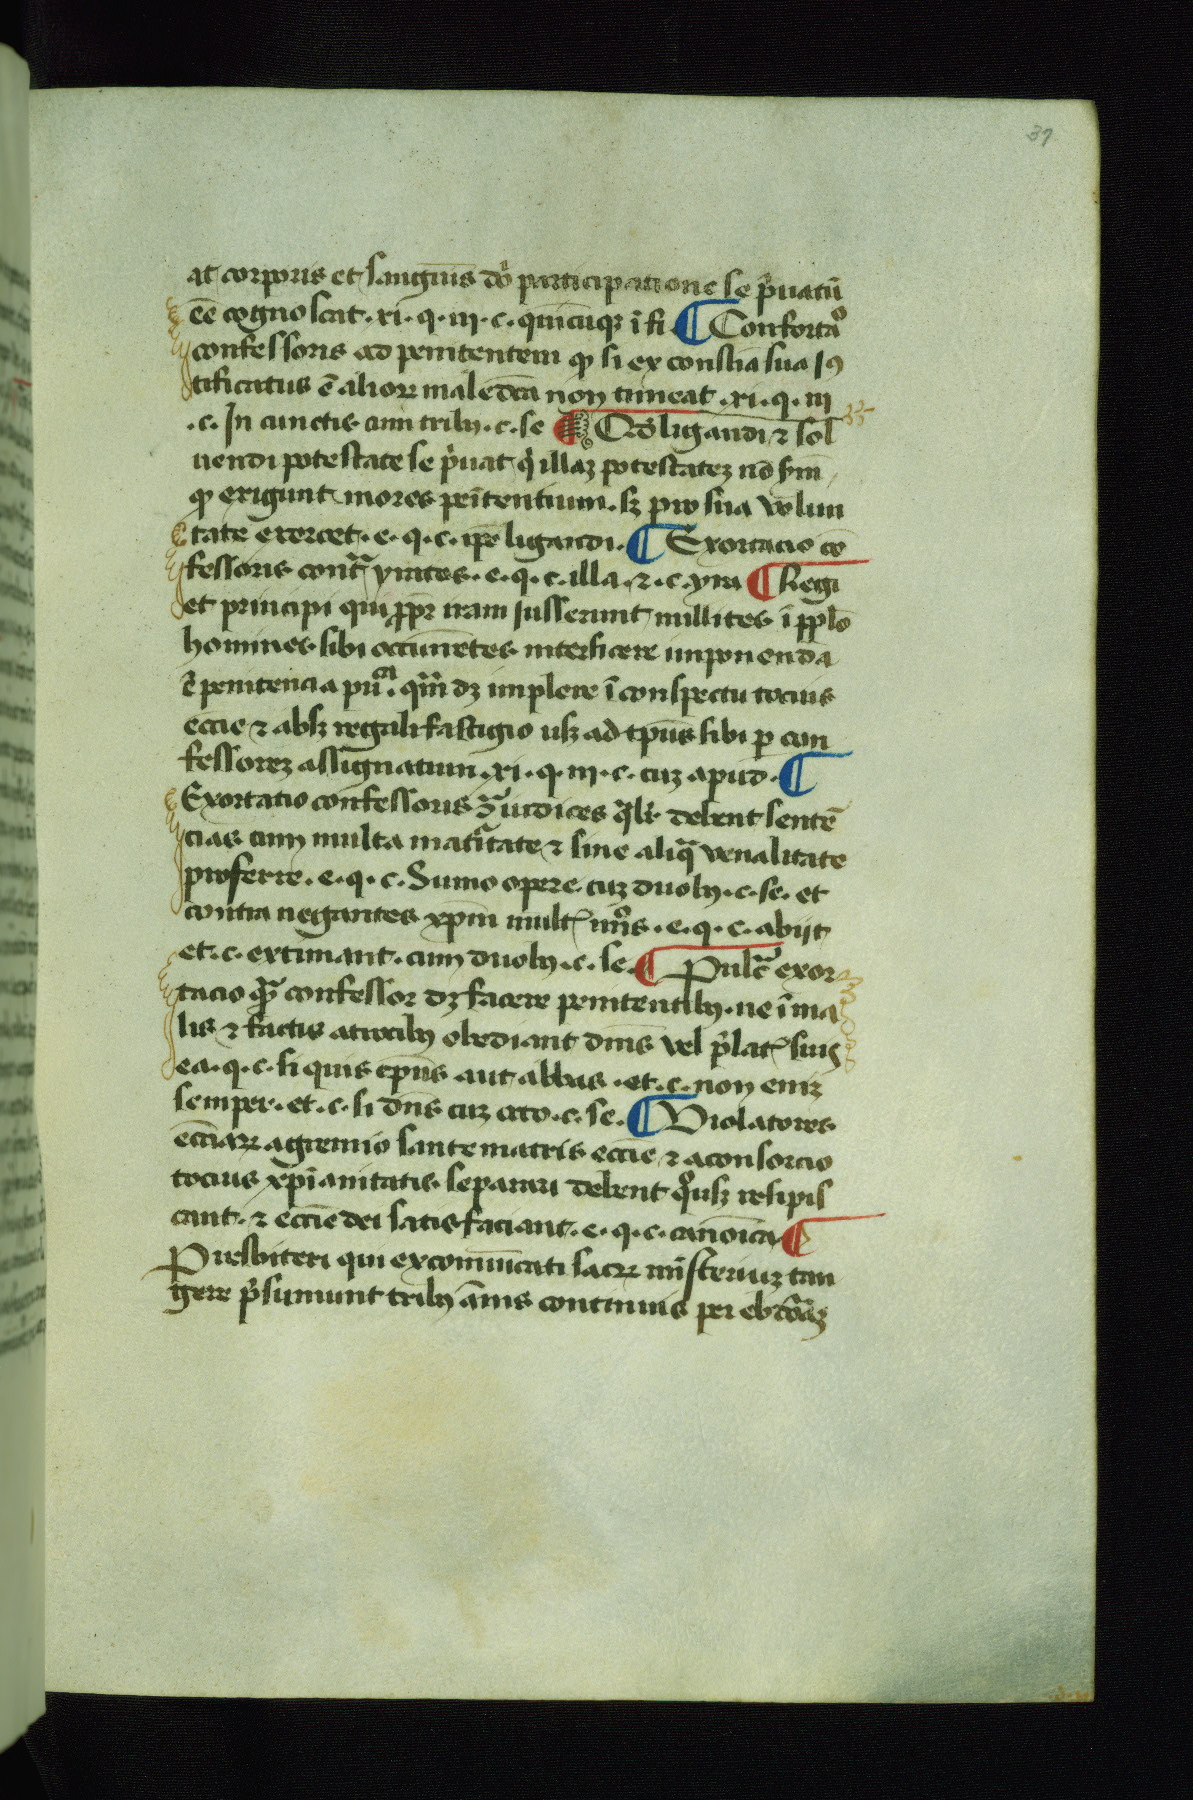 37
at corporis et sanguīs dōi participatione se p̄uatū
eē cognoscat. xi. q. iii. c. quicūqꝫ ī fi ¶ Confortaº
confessoris ad penitentem ꝙ si ex consčia sua Iꝯ
tificatus ē alioꝝ maledcā non timeat. xi. q. iii
.c. In cunctis cum tribꝫ. c. se ¶ ligandi ⁊ sol
uendi potestate se p̄uat q̇ illaꝫ potestateꝫ nō
ꝙ exigunt mores penitentium. sꝫ pro sua volun
tate exercet. e. q. c. ip̄e ligandi. ¶ Exortacio cō
fessoris . e. q. c. illa. ⁊. c. yra ¶ Regi
et principi qui ꝓpr̄ iram Iusserunt millites ī pp̄lo
homines sibi occurrētes interficere imponenda
ē penitencia pu.ca qm̄ dꝫ implere ī conspectu tocius
eccīe ⁊ absꝫ regali fastigio usꝫ ad tp̄us sibi ꝑ con
fessoreꝫ assignatum. xi. q. iii. c. cuꝫ apud. ¶
Exortatio confessoris iudices debent sentē
cias cum multa mat̄itate ⁊ sine aliqᵃ venalitate
proferre. e. q. c. Sumo opere cuꝫ duobꝫ. c. se. et
contra negantes xp̄m mult. e. q. c. abiit
et. c. extimant. cum duobꝫ. c. se. ¶ Pulcᵃ exor
tacio quā confessor dꝫ facere penitentibꝫ. ne ī ma
lis ⁊ factis atrocibꝫ obediant dn̄is vel p̄lat suis
ea. q. c. si quis ep̄us aut abbas. et. c. non eniꝫ
semper. et. c. si dn̄s cuꝫ c. se. ¶ Violatores
eccīaꝝ a gremio sante matris eccīe ⁊ a consorcio
tocius xp̄ianitatis separari debent qºusꝫ resipis
cant. ⁊ eccīe dei satis faciant. e. q. c. canōica ¶
Presbiteri qui excomūcati sacꝝ mīsteriuꝫ tan
gere p̄sumunt tribꝫ ānis continuis per ebdōaꝫ